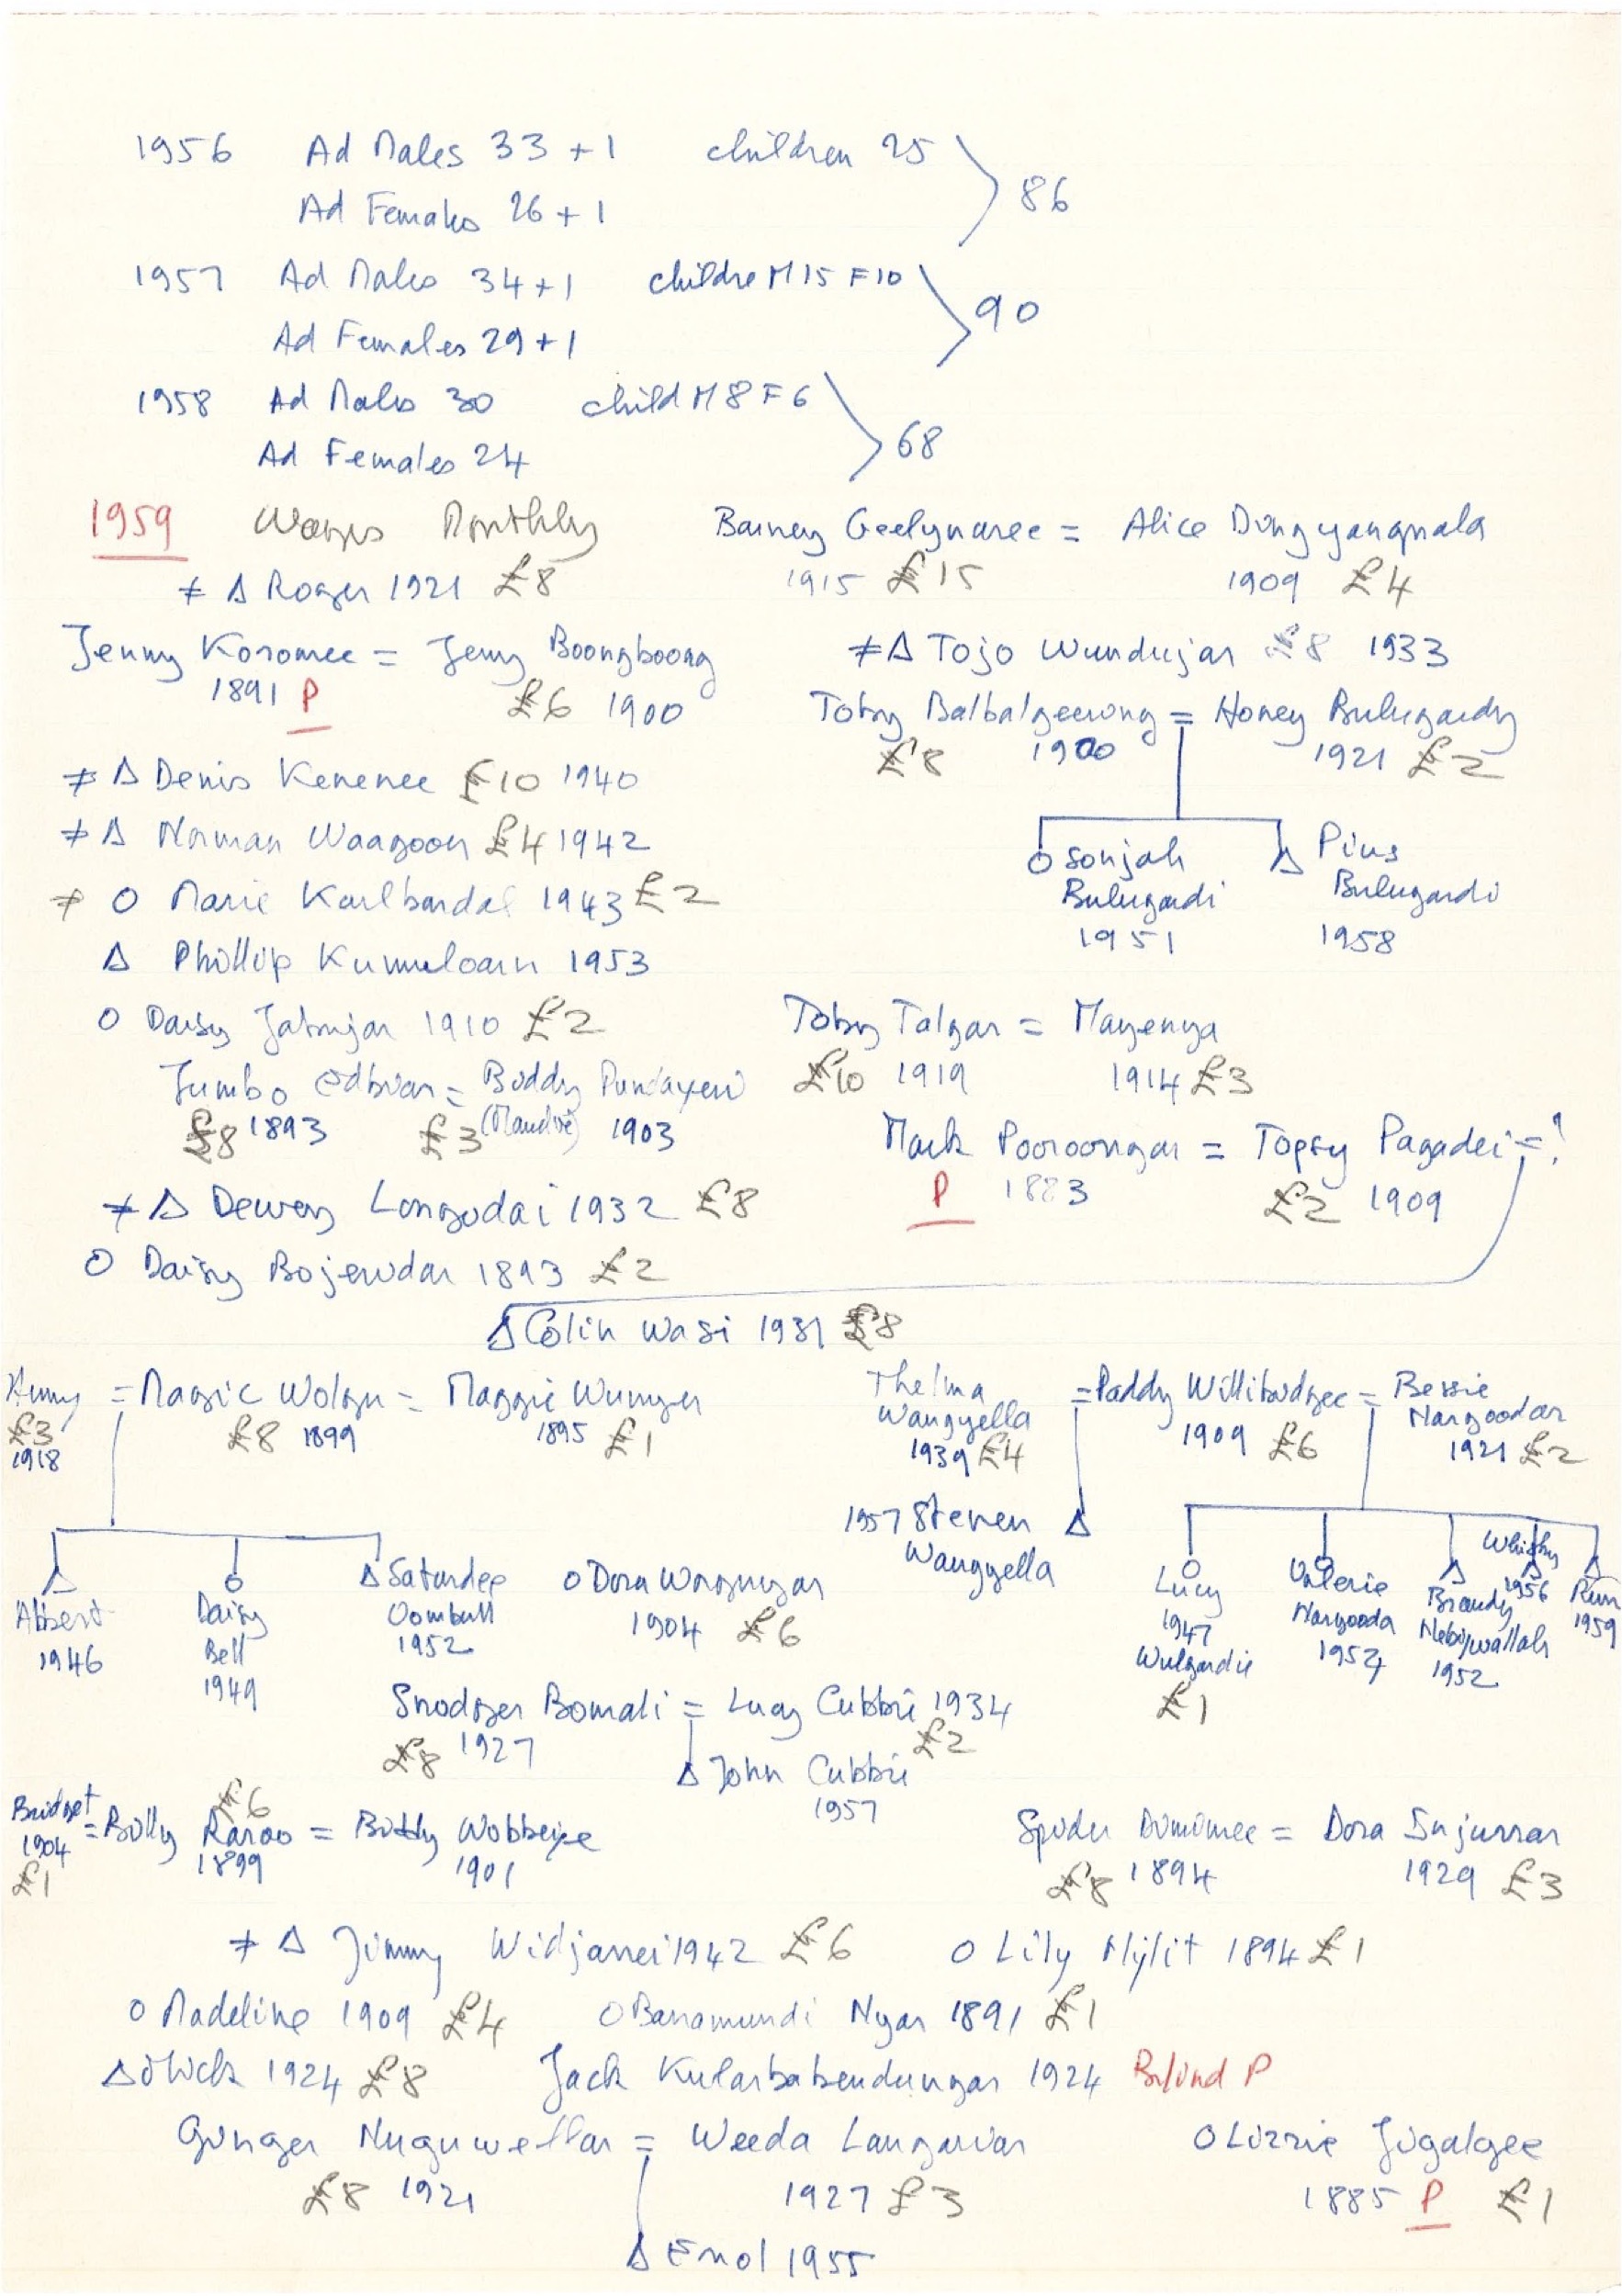 1956 Ad Males 33 + 1 children 25
Ad Females 26 + 1
86
1957 Ad Males 34 + 1 childre M 15 F 10
Ad Females 29 + 1
90
1958 Ad Males 30 child M 8 F 6
Ad Females 24
68
1959 Wages Monthly
≠ Δ Roger 1921 £8
Jenny Koromee = Jerry Boongboong
1891 P £6 1900
≠ Δ Denis Kenenee £10 1940
≠ Δ Norman Waagoon £4 1942
≠ O Marie Karlbardal 1943 £2
Δ Phillip Kumuloain 1953
O Daisy Jabnijar 1910 £2
Jumbo = Biddy
£8 1893 £3 1903
≠ Δ Dewey Longudai 1932 £8
O Daisy Bojerudar 1893 £2
Barney Geelynaree = Alice Dingyangnala
1915 £15 1909 £4
≠ Δ Tojo Wundujar £8 1933
Toby Balbalgeerong = Honey Bulugardy
£8 1900 1921 £2
O Sonjah Δ Pius
Bulugardi Bulugardi
1951 1958
Toby Talgar = Mayenya
£10 1919 1914 £3
Mark Pooroongar = Topsy Pagadei = ?
P 1883 £2 1909
Δ Colin Wasi 1931 £8
= Magic Wolgu = Maggie Wunyer
£3 £8 1899 1895 £1
1918
Albert Daisy Δ Saturdee
1946 Bell Oombull
1949 1952
O Dora Worgnugar
1904 £6
Thelma = Paddy Willibudgee = Bessie
Wanggella 1909 £6 Nargoodar
1939 £4 1921 £2
1957 Steven Δ
Wanggella
Lucy Valerie Brandy Whisky Rum
1947 Nargooda Nebijwallah 1956 1959
Wulgardie 1954 1952
£1
Snodger Bomali = Lucy Cubbie 1934
£8 1927 £2
Δ John Cubbie
1957
Bridget = Billy Raroo = Biddy Wobbeiye
1904 £6 1899 1901
£1
Spider Dimimee = Dora Injurrar
£8 1894 1929 £3
≠ Δ Jimmy Widjanei 1942 £6 O Lily Nylit 1894 £1
O Madeline 1909 £4 O Barramundi Nyar 1891 £1
Δ 1924 £8 Jack Kularbabendungar 1924 Blind P
Ginger Nuguwellar = Weeda Langarian O Lizzie Jigalgee
£8 1921 1927 £3 1885 P £1
Δ Enol 1955